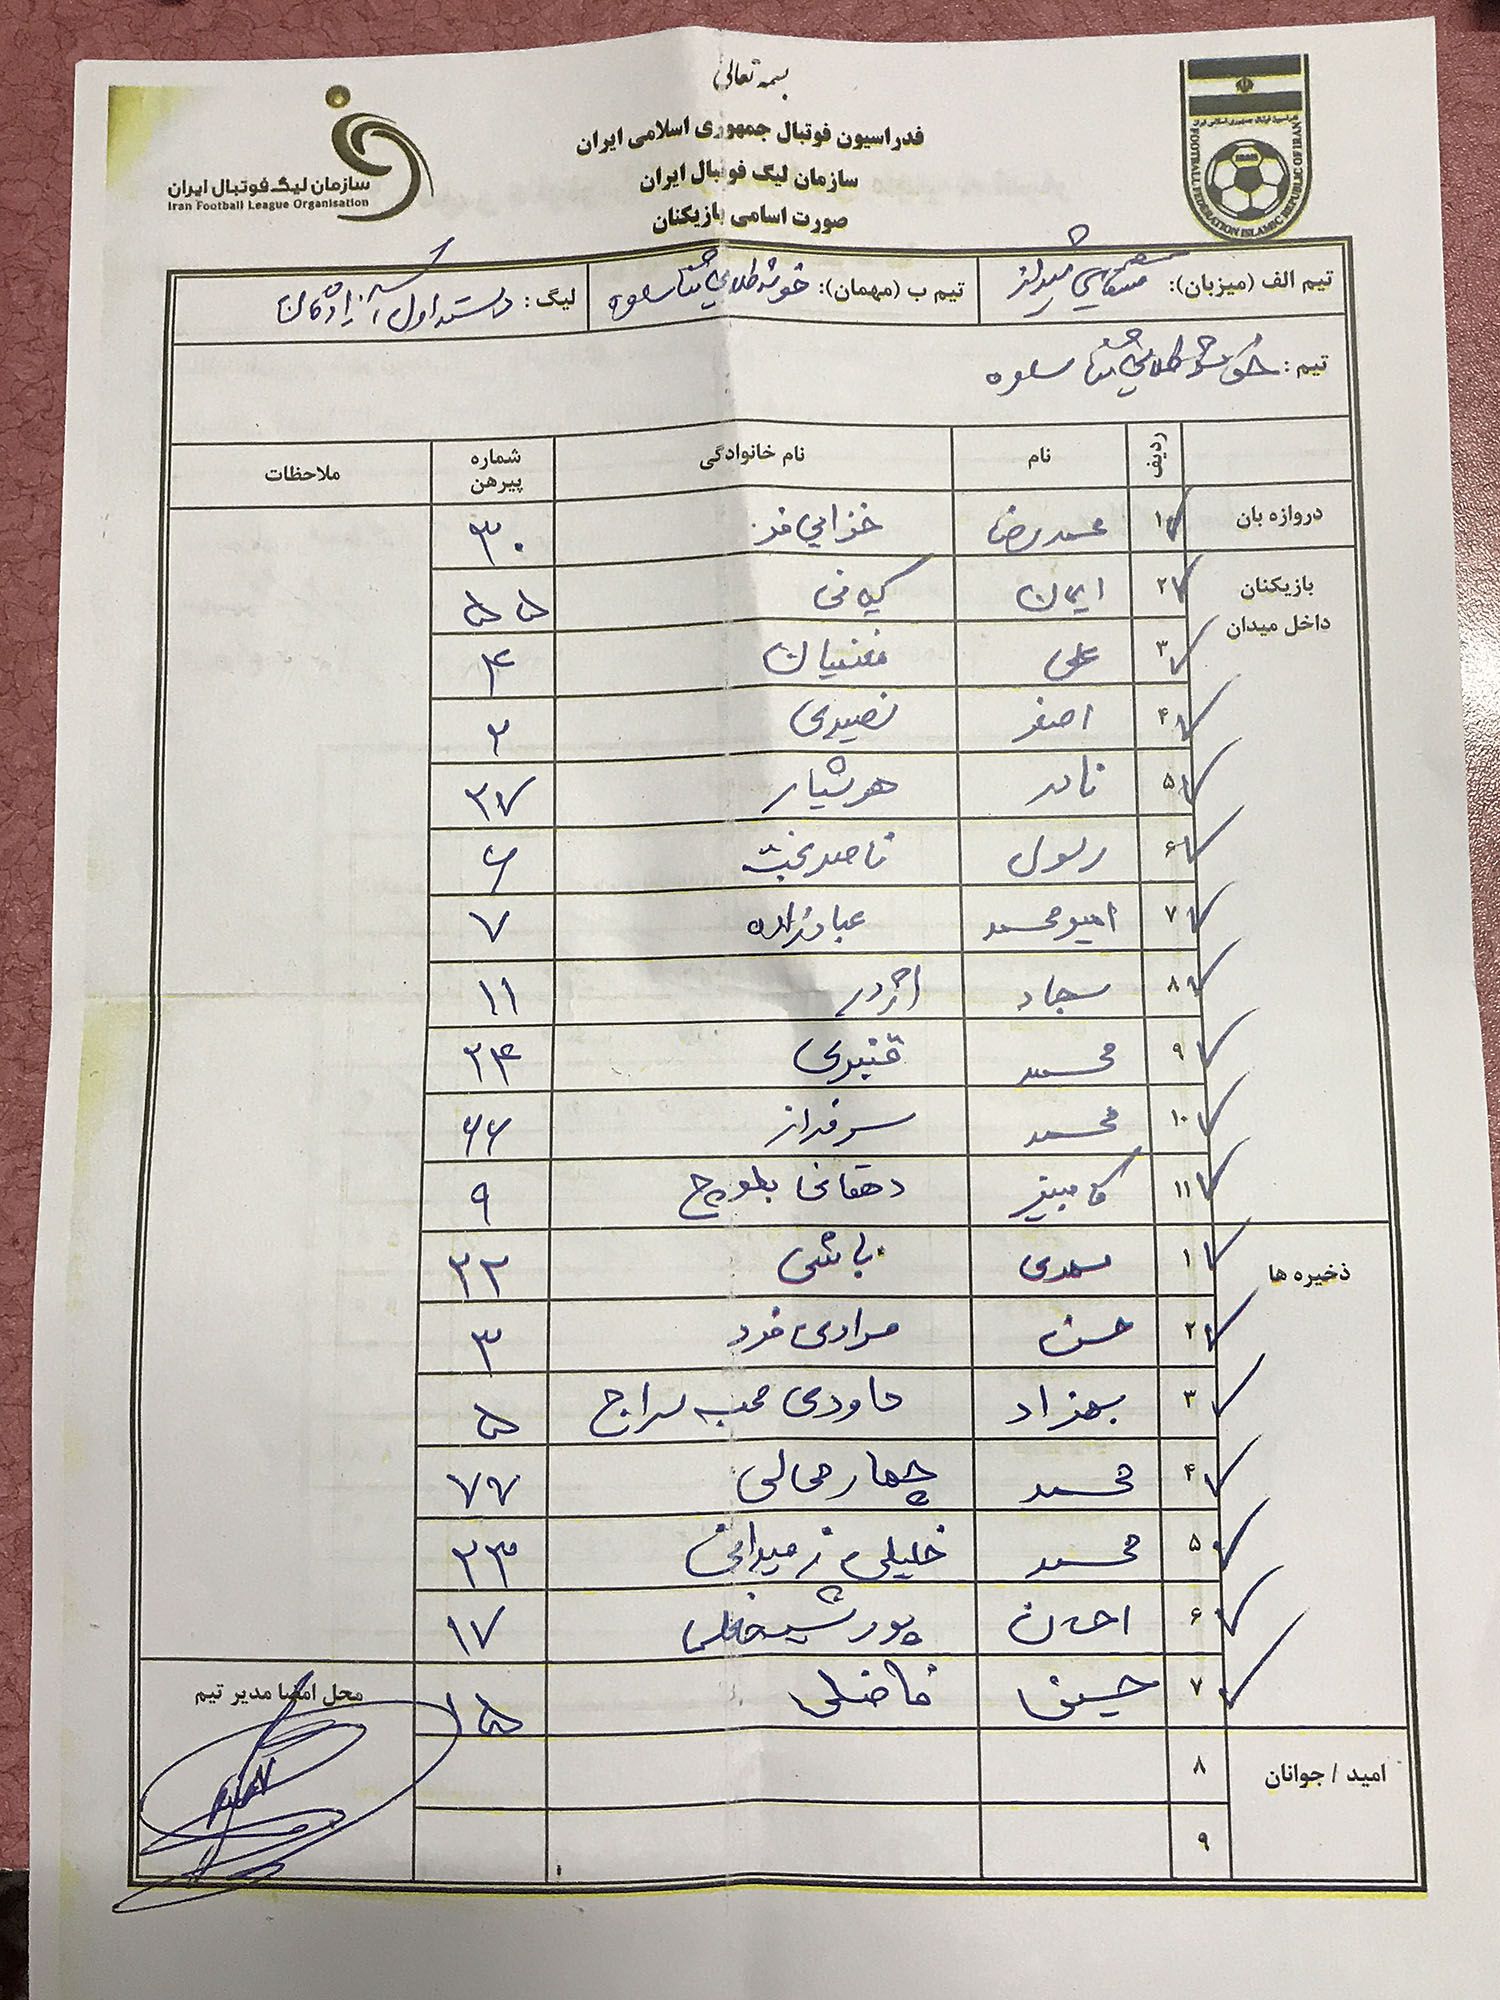 بسمه تعالی
فدراسیون فوتبال جمهوری اسلامی ایران
سازمان لیگ فوتبال ایران
صورت اسامی بازیکنان
فدراسیون فوتبال جمهوری اسلامی ایران
IRAN
FOOTBALL FEDERATION ISLAMIC REPUBLIC OF IRAN
سازمان لیگ فوتبال ایران
Iran Football League Organisation
تیم الف (میزبان): شیراز
تیم ب (مهمان): خوشه طلایی ساوه
لیگ: دسته اول آزادگان
تیم: خوشه طلایی ساوه
ردیف نام نام خانوادگی شماره پیرهن ملاحظات
دروازه بان ۱ محمدرضا خزایی فر ۳۰
بازیکنان داخل میدان
۲ ایمان کیانی ۵۵
۳ علی مغنیان ۴
۴ اصغر نصیری ۲
۵ نادر هوشیار ۲۷
۶ رسول ناصربخت ۶
۷ امیرمحمد عبادزاده ۷
۸ سجاد اژدر ۱۱
۹ محمد قنبری ۲۴
۱۰ محمد سرفراز ۶۶
۱۱ کامبیز دهقانی بلوچ ۹
ذخیره ها
۱ مهدی باشی ۲۲
۲ حسن مرادی فرد ۳
۳ بهزاد داودی محب سراج ۵
۴ محمد چهارمحالی ۷۷
۵ محمد خلیلی ۲۳
۶ پورشیخعلی ۱۷
۷ حسین فاضلی ۱۵
امید / جوانان
۸
۹
محل امضا مدیر تیم